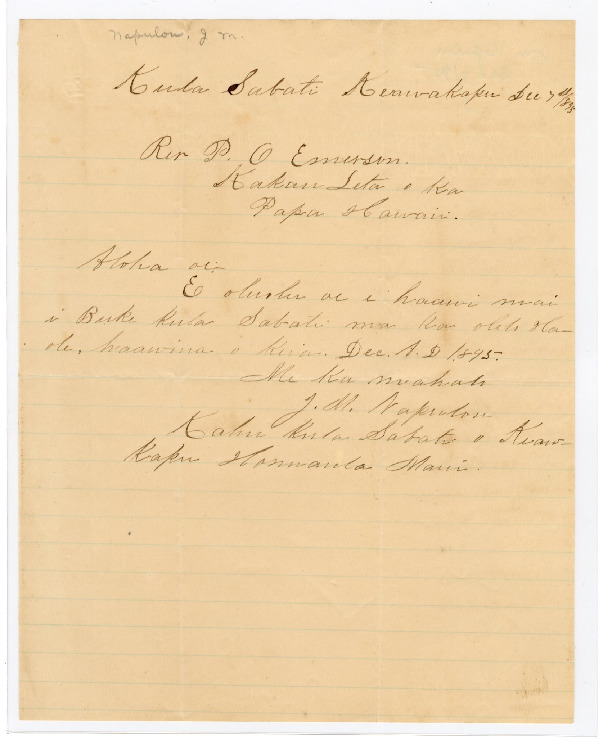 Napulou, J M.
Kula Sabati Keawakapu Dec 7th/1895
Rev P. O Emerson.
Kakau Leta o ka
Papa Hawaii.
Aloha oe;
E oluolu oe i haawi mai
i Buke kula Sabati ma ka olelo Ha-
ole, haawina o keia. Dec. A.D 1895.
Me ka mahalo
J. M. Napulou
Kahu kula Sabati o Keawa-
kapu Honuaula Maui.